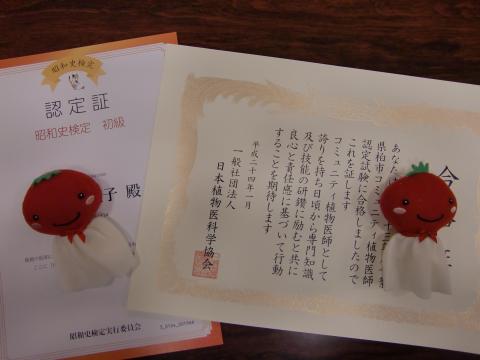 昭和史検定
認定証
昭和史検定 初級
子 殿
昭和史検定実行委員会
あなた
県柏市コミュニティ植物医師
認定試験に合格しましたので
これを証します
コミュニティ植物医師として
誇りを持ち日頃から専門知識
及び技能の研鑽に励むと共に
良心と責任感に基づいて行動
することを期待します
平成二十四年一月
一般社団法人
日本植物医科学協会